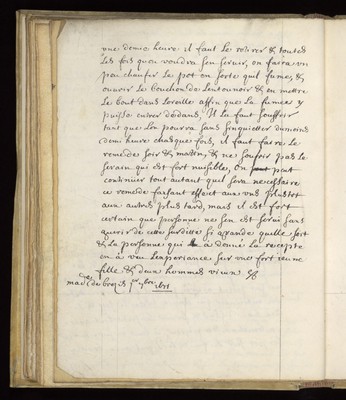 une demie heure il faut le retirer & toutes
les fois quon voudra sen servir, on faira un
peu chaufer le pot en sorte quil fume, &
ouvrir le bouchon de lentounoir & en mettre
le bout dans loreille affin que la fumée y
puisse entrer dedans, Il la faut souffrir
tant que lon pourra sans sinquietter du moins
demi heure chasque fois, il faut faire le
remede soir & mattin, & ne soufrir pas le
serain qui est fort nuisible, on peut
continuer tout autant quil sera necessaire
ce remede faisant effect aux uns plustot
aux autres plus tard, mais il est fort
certain que personne ne sen est servi sans
guerir de cette surditte si grande quelle soit
& la personne qui a donné la recepte
en a veu lexperiance sur une fort jeune
fille & deux hommes vieux
1671